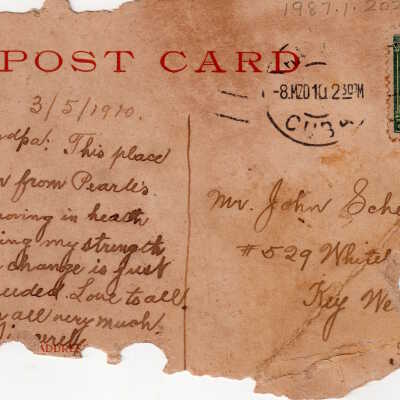 1987.1.202
POST CARD
-8.MZO10 2 30PM
CUBA
3/5/1910.
ndpa: This place
from Pearle's.
roving in heath
ing my strength
change is just
eeded. Love to all
all very much.
Sincerely
ADDRE
Mr. John Sche
#529 White
Key We